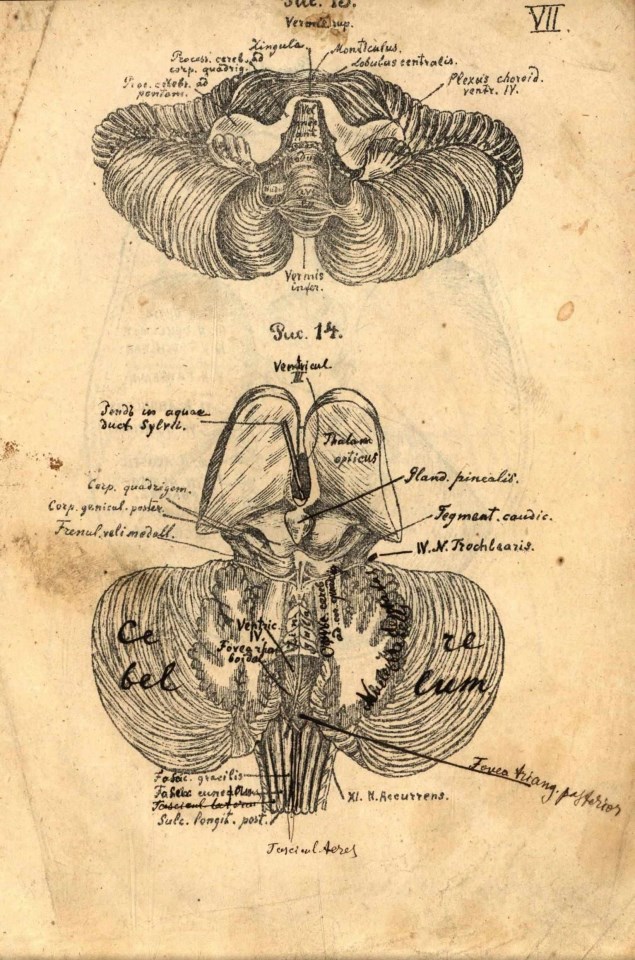 Рис. 13.
VII.
Vermis sup.
Zingula.
Monticulus.
Process. cereb. ad
corp. quadrig.
Lobulus centralis.
Proc. cerebr. ad
pontem.
Plexus choroid.
ventr. IV.
Vermis
infer.
Рис. 14.
Ventricul
III
Sonds in aquae
duct Sylvii.
Thalam.
opticus
Corp. quadrigem.
Gland. pinealis.
Corp. genicul. poster.
Tegment. caudic.
Frenul. veli medull.
IV. N. Trochlearis.
Ce
bel
re
lum
Ventric.
IV.
Fasc. gracilis
XI. N. Recurrens.
Sulc. longit. post.
Fovea triang. posterior
Fascicul. teres